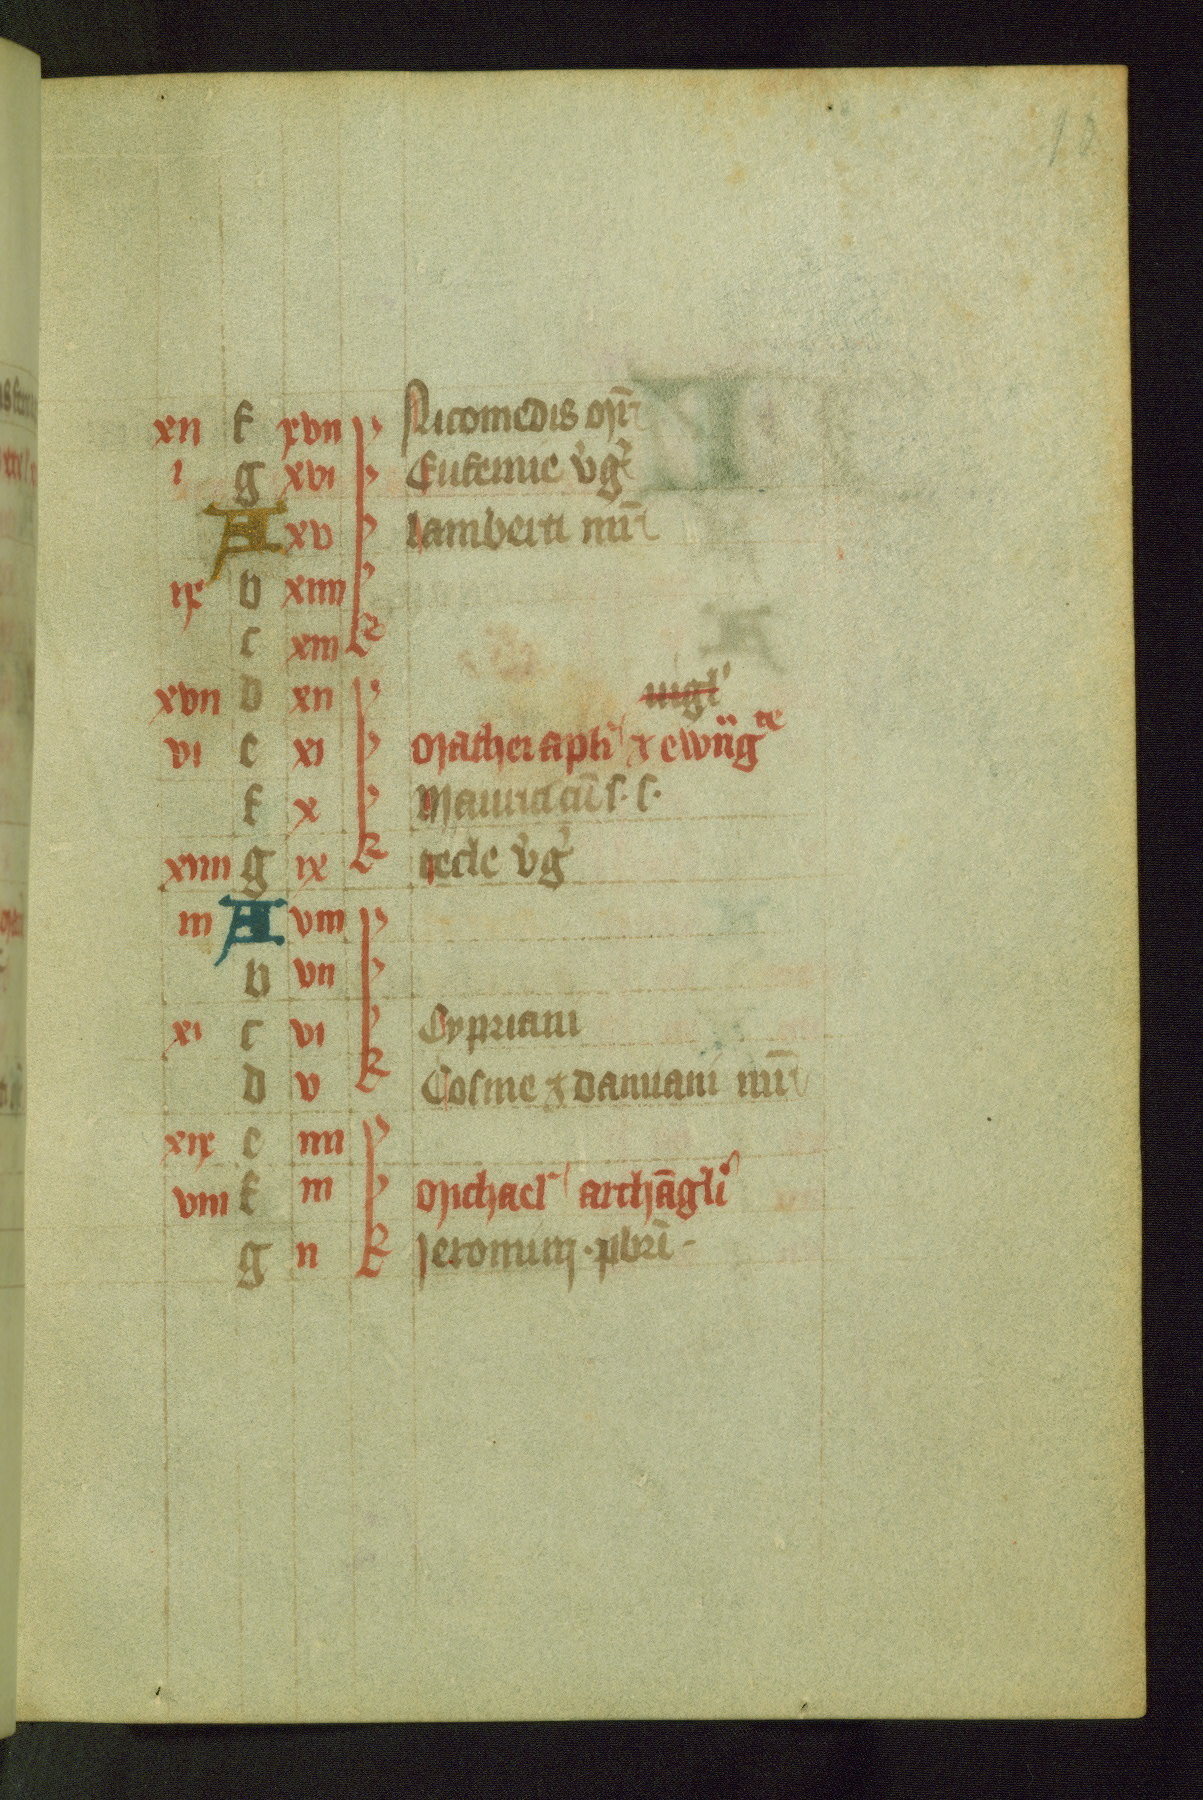 10
xii f xvii k Nicomedis mr̄
i g xvi k Eufemie v̓g̓
A xv k lamberti mr̄
ix b xiiii k
c xiii k
xvii d xii k vigl'
vi e xi k Mathei apl'i & ewãg te
f x k Mauricii s. s.
xiiii g ix k tecle v̓g̓
iii A viii k
b vii k
xi c vi k Cypriani
d v k Cosme & damiani mr̄
xix e iiii k
viii f iii k Michael' archãgl'i
g ii k Jeronimi . pbr̄i -